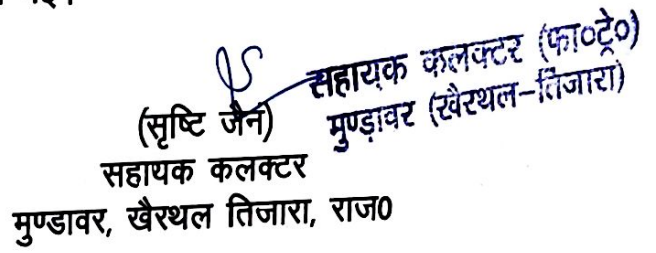 सहायक कलक्टर (फा०ट्रे०)
मुण्ड़ावर (खैरथल-तिजारा)
(सृष्टि जैन)
सहायक कलक्टर
मुण्डावर, खैरथल तिजारा, राज0